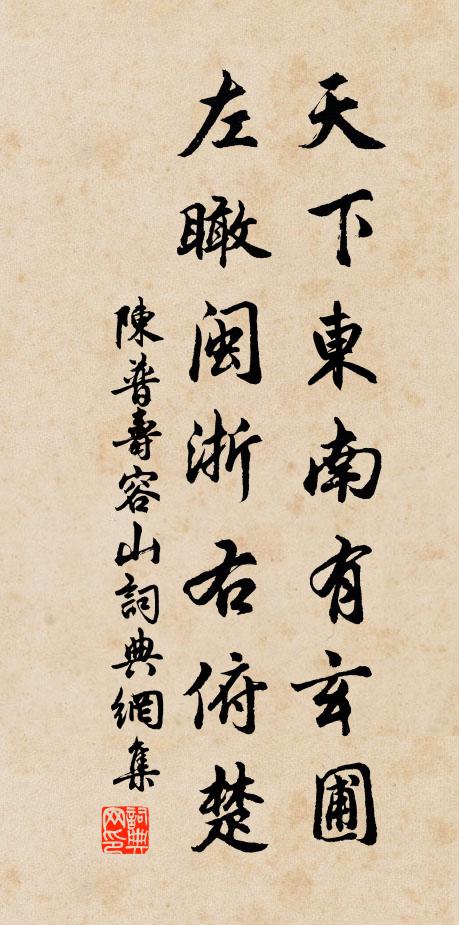 天下東南有玄圃
左瞰閩浙右俯楚
陳普壽容山詞典網集
詞典网印